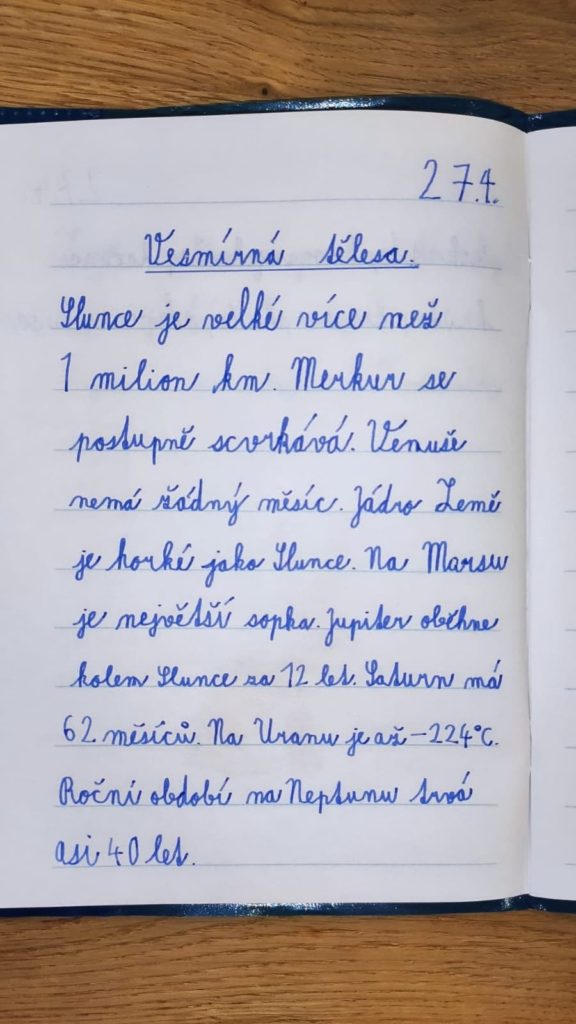 27.4.
Vesmírná tělesa.
Slunce je velké více než
1 milion km. Merkur se
postupně scvrkává. Venuše
nemá žádný měsíc. Jádro Země
je horké jako Slunce. Na Marsu
je největší sopka. Jupiter oběhne
kolem Slunce za 12 let. Saturn má
62 měsíců. Na Uranu je až -224°C.
Roční období na Neptunu trvá
asi 40 let.